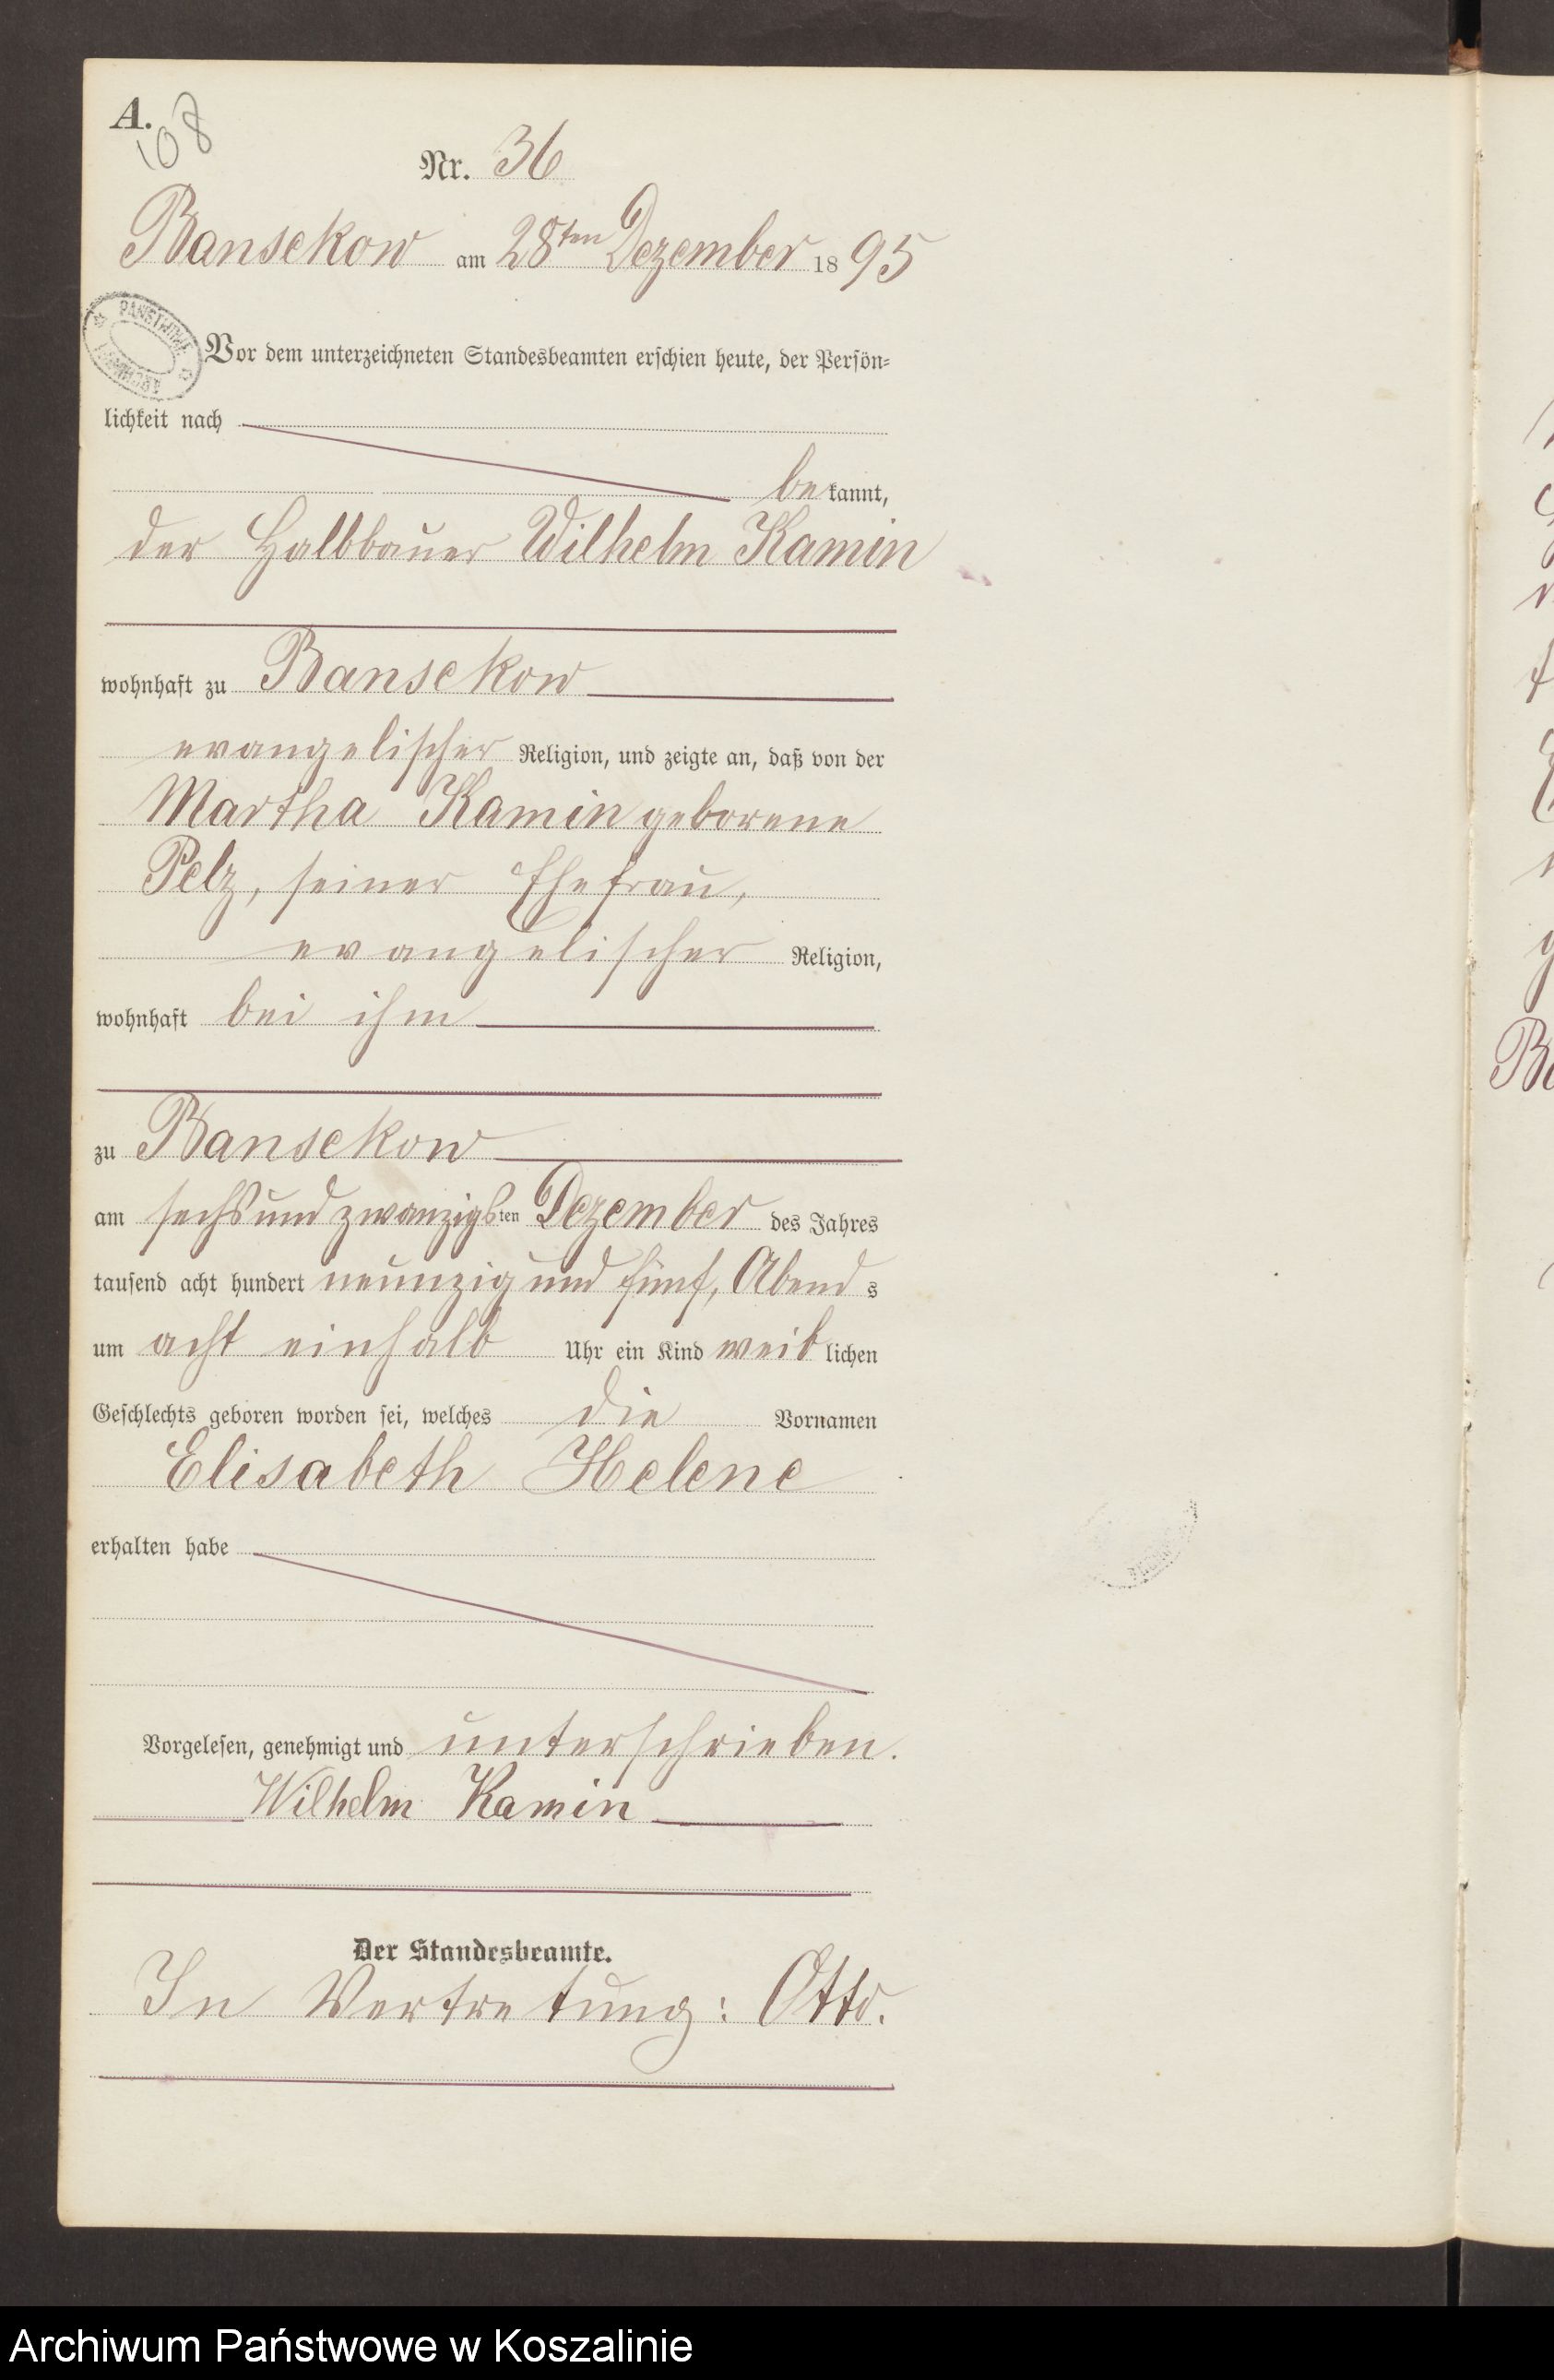 A.
108
Nr. 36
Bansekow am 28ten Dezember 1895
PAŃSTWOWE ARCHIWUM
Vor dem unterzeichneten Standesbeamten erschien heute, der Persön=
lichkeit nach
bekannt,
der Halbbauer Wilhelm Kamin
wohnhaft zu Bansekow
evangelischer Religion, und zeigte an, daß von der
Martha Kamin geborene
Pelz, seiner Ehefrau,
evangelischer Religion,
wohnhaft bei ihm
zu Bansekow
am sechsundzwanzigsten Dezember des Jahres
tausend acht hundert neunzig und fünf, Abends
um acht einhalb Uhr ein Kind weiblichen
Geschlechts geboren worden sei, welches die Vornamen
Elisabeth Helene
erhalten habe
Vorgelesen, genehmigt und unterschrieben.
Wilhelm Kamin
Der Standesbeamte.
In Vertretung: Otto.
Archiwum Państwowe w Koszalinie